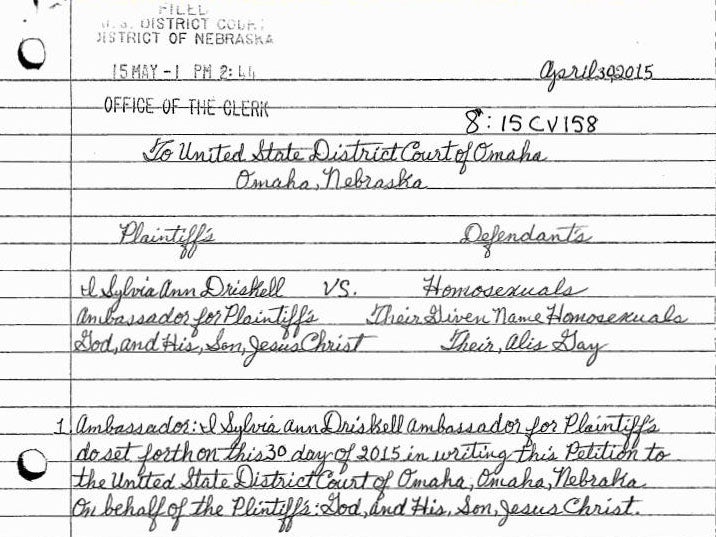 FILED
U.S. DISTRICT COURT
DISTRICT OF NEBRASKA
15 MAY -1 PM 2:44
April 30, 2015
OFFICE OF THE CLERK
8:15CV158
To United State District Court of Omaha
Omaha, Nebraska
Plaintiff's Defendant's
I Sylvia Ann Driskell VS. Homosexuals
Ambassador for Plaintiff's Their Given Name Homosexuals
God, and His, Son, Jesus Christ Their, Alis Gay
1. Ambassador: I Sylvia Ann Driskell Ambassador for Plaintiff's
do set forth on this 30 day of 2015 in writing this Petition to
the United State District Court of Omaha, Omaha, Nebraka.
On behalf of the Plintiff's: God, and His, Son, Jesus Christ.